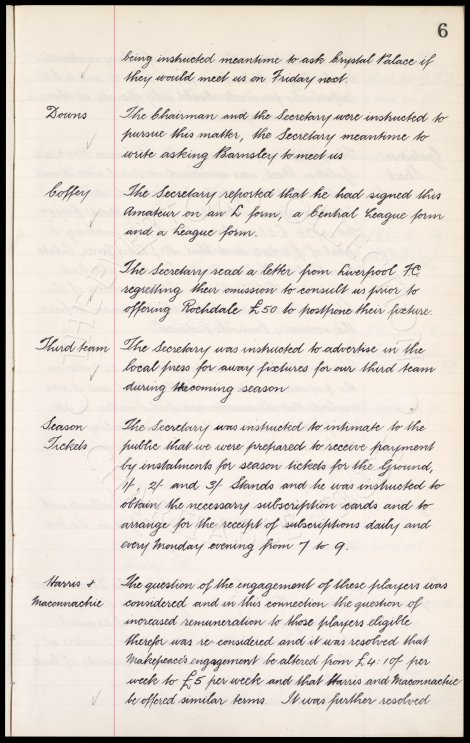 6
being instructed meantime to ask Crystal Palace if
they would meet us on Friday next.
Downs
The Chairman and the Secretary were instructed to
pursue this matter, the Secretary meantime to
write asking Barnsley to meet us
Coffey
The Secretary reported that he had signed this
Amateur on an L form, a Central League form
and a League form.
The Secretary read a letter from Liverpool FC
regretting their omission to consult us prior to
offering Rochdale £50 to postpone their fixture
Third team
The Secretary was instructed to advertise in the
local press for away fixtures for our third team
during the coming season
Season
Tickets
The Secretary was instructed to intimate to the
public that we were prepared to receive payment
by instalments for season tickets for the Ground,
1/, 2/ and 3/ Stands and he was instructed to
obtain the necessary subscription cards and to
arrange for the receipt of subscriptions daily and
every Monday evening from 7 to 9.
Harris +
Maconnachie
The question of the engagement of these players was
considered and in this connection the question of
increased remuneration to those players eligible
therefor was re-considered and it was resolved that
Makepeace's engagement be altered from £4:10/ per
week to £5 per week and that Harris and Maconnachie
be offered similar terms. It was further resolved